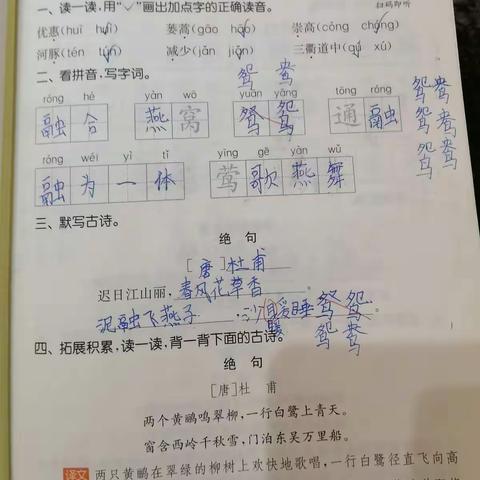 一、读一读,用“✓”画出加点字的正确读音。
扫码即听
优惠(huī huì) 蒌蒿(gāo hāo) 崇高(cóng chóng)
河豚(tén tún) 减少(jiān jiǎn) 三衢道中(qú xú)
二、看拼音,写字词。
鸳 鸯
róng hé yàn wō yuān yāng tōng róng
融合 燕窝 鸳鸯 通融
鸳鸯
鸳鸯
鸳鸯
róng wéi yì tǐ yīng gē yàn wǔ
融为一体 莺歌燕舞
三、默写古诗。
绝 句
[唐]杜甫
迟日江山丽,春风花草香。
泥融飞燕子,沙暖睡鸳鸯
暖 鸳鸯
四、拓展积累,读一读,背一背下面的古诗。
绝 句
[唐]杜 甫
两个黄鹂鸣翠柳,一行白鹭上青天。
窗含西岭千秋雪,门泊东吴万里船。
译文 两只黄鹂在翠绿的柳树上欢快地歌唱,一行白鹭径直飞向高